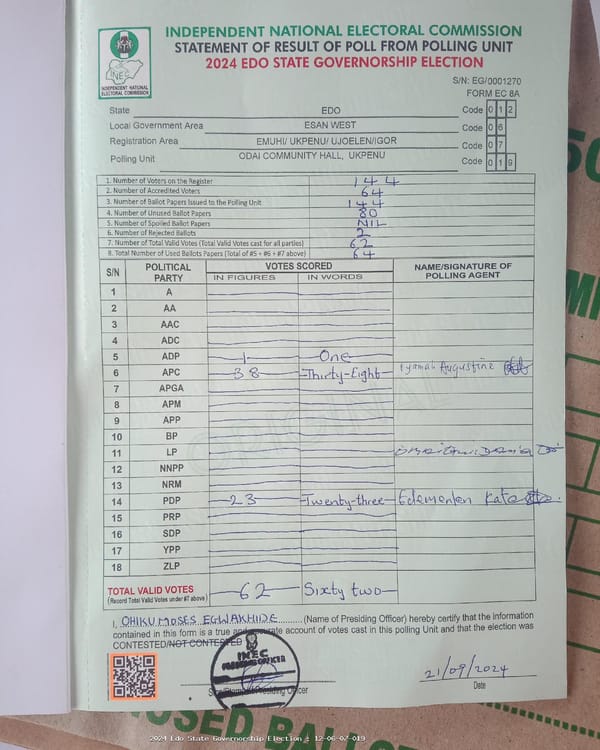 INDEPENDENT NATIONAL ELECTORAL COMMISSION
STATEMENT OF RESULT OF POLL FROM POLLING UNIT
2024 EDO STATE GOVERNORSHIP ELECTION
INEC
INDEPENDENT NATIONAL ELECTORAL COMMISSION
S/N: EG/0001270
FORM EC 8A
State EDO Code 0 1 2
Local Government Area ESAN WEST Code 0 6
Registration Area EMUHI/ UKPENU/ UJOELEN/IGOR Code 0 7
Polling Unit ODAI COMMUNITY HALL, UKPENU Code 0 1 9
1. Number of Voters on the Register 144
2. Number of Accredited Voters 64
3. Number of Ballot Papers Issued to the Polling Unit 144
4. Number of Unused Ballot Papers 80
5. Number of Spoiled Ballot Papers NIL
6. Number of Rejected Ballots 2
7. Number of Total Valid Votes (Total Valid Votes cast for all parties) 62
8. Total Number of Used Ballots Papers (Total of #5 + #6 + #7 above) 64
S/N POLITICAL PARTY VOTES SCORED NAME/SIGNATURE OF POLLING AGENT
IN FIGURES IN WORDS
1 A
2 AA
3 AAC
4 ADC
5 ADP 1 One
6 APC 38 Thirty-Eight Iyamah Augustine
7 APGA
8 APM
9 APP
10 BP
11 LP
12 NNPP
13 NRM
14 PDP 23 Twenty-three Edemenlen Kate
15 PRP
16 SDP
17 YPP
18 ZLP
ORIGINAL
TOTAL VALID VOTES 62 Sixty two
(Record Total Valid Votes under #7 above)
I, OHIKU MOSES EGWAKHIDE (Name of Presiding Officer) hereby certify that the information
contained in this form is a true and accurate account of votes cast in this polling Unit and that the election was
CONTESTED/NOT CONTESTED
INEC
PRESIDING OFFICER
Presiding Officer
21/09/2024
Date
2024 Edo State Governorship Election : 12-06-07-019